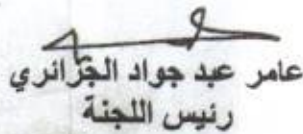 عامر عبد جواد الجزائري
رئيس اللجنة